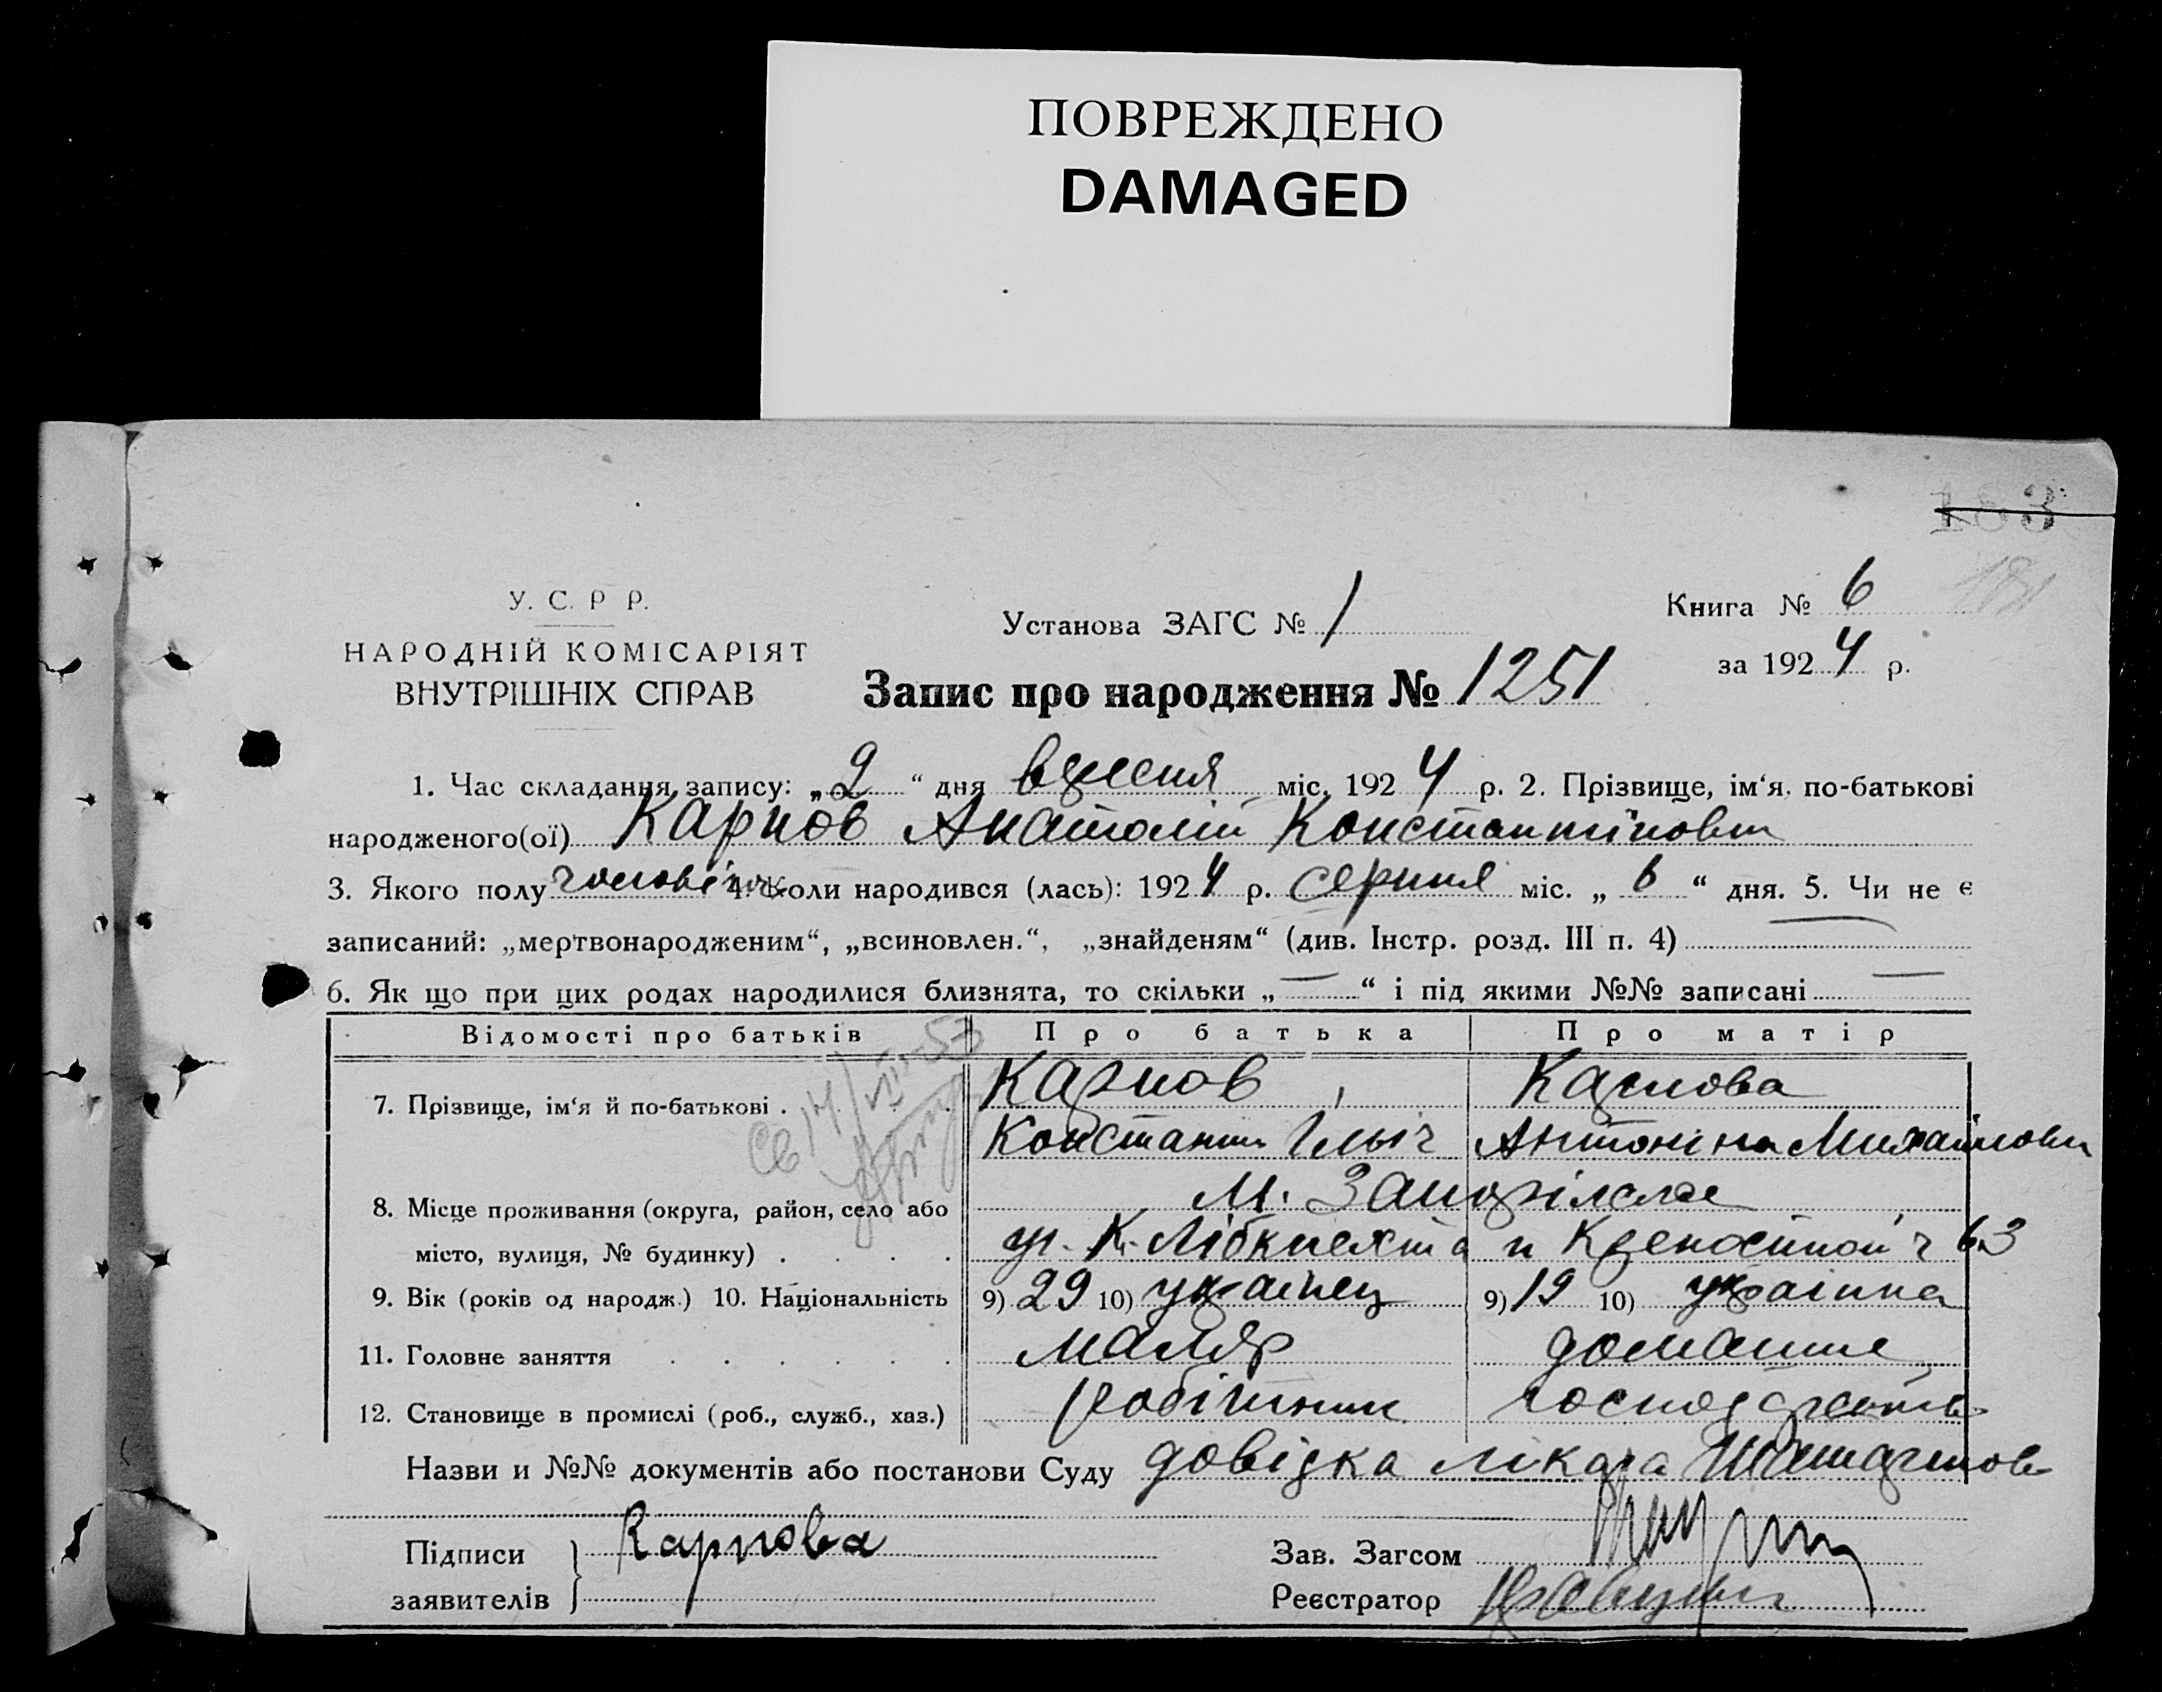 ПОВРЕЖДЕНО
DAMAGED
183
У. С. Р Р.
НАРОДНІЙ КОМІСАРІЯТ
ВНУТРІШНІХ СПРАВ
Установа ЗАГС № 1
Книга № 6
за 1924 р.
Запис про народження № 1251
1. Час складання запису: „2“ дня вересня міс. 1924 р. 2. Прізвище, ім‘я, по-батькові
народженого(ої) Карпов Анатолій Константінович
3. Якого полу чоловіч. 4. Коли народився (лась): 1924 р. серпня міс. „6“ дня. 5. Чи не є
записаний: „мертвонародженим“, „всиновлен.“, „знайденям“ (див. Інстр. розд. III п. 4) —
6. Як що при цих родах народилися близнята, то скільки „—“ і під якими №№ записані —
Відомості про батьків Про батька Про матір
7. Прізвище, ім‘я й по-батькові . Карпов Карпова
Константин Ільїч Антоніна Михайловн
8. Місце проживання (округа, район, село або м. Запоріжже
місто, вулиця, № будинку) . . . . К. Лібкнехта и Крепостной 63
9. Вік (років од народж.) 10. Національність 9) 29 10) українец 9) 19 10) україінка
11. Головне заняття . . . . . . маляр домашне
12. Становище в промислі (роб., служб., хаз.) робітник господарств
Назви и №№ документів або постанови Суду довідка лікаря
Підписи
заявителів
Карпова
Зав. Загсом
Реєстратор